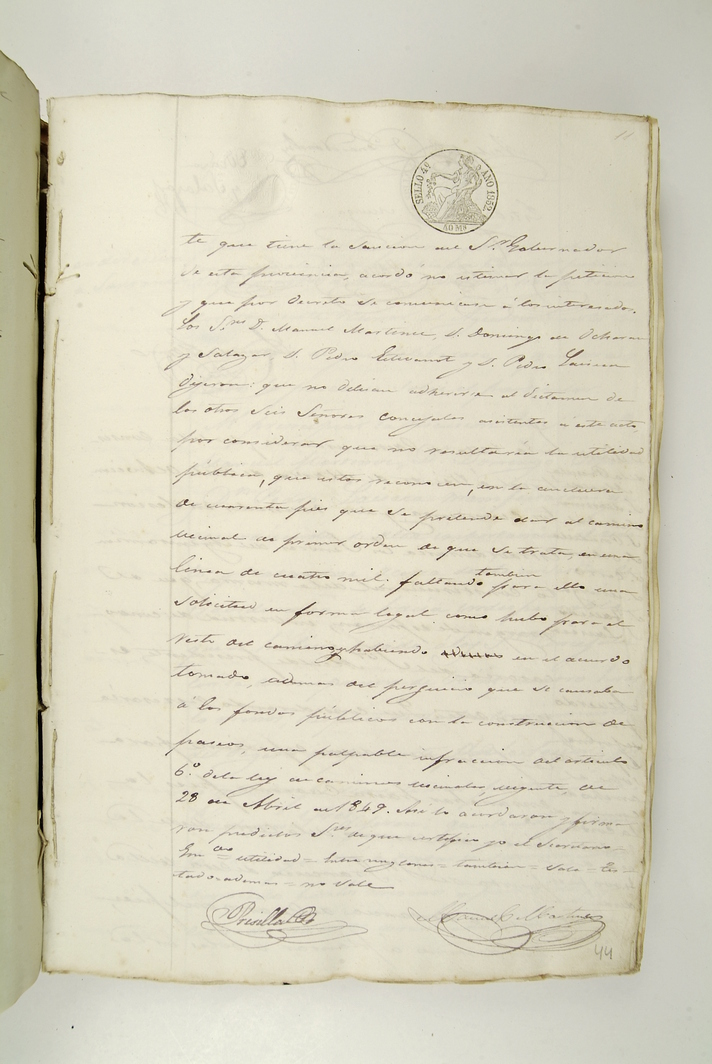 11
SELLO 4º AÑO 1859.
40 Ms
te que tiene la sancion del S.or Gobernador
de esta provincia, acordó no estimar la peticion
y que por decreto se comunicase á los interesados.
Los S.res D. Manuel Martinez, D. Domingo de Ochoran
y Salazar, D. Pedro y D. Pedro
dijeron: que no debian adherirse al dictamen de
los otros seis Señores concejales asistentes a este acto
por considerar que no resultaría la utilidad
pública, que estos reconocen, en la anchura
de cuarenta pies que se pretende dar al camino
vecinal de primer orden de que se trata, en una
linea de cuatro mil; faltando tambien para ello una
solicitud en forma legal como hubo para el
resto del camino, y habiendo en el acuerdo
tomado, además del perjuicio que se causaba
á los fondos públicos con la construccion de
paseos, una palpable infraccion del articulo
6.º de la ley de caminos vecinales, vigente, de
28 de Abril de 1849. Asi lo acordaron y firma-
ron predichos S.res de que certifico yo el Secretario=
Em.do = utilidad = Entre renglones = tambien = vale = Tes-
tado = ademas = no vale
Manuel Martinez
44